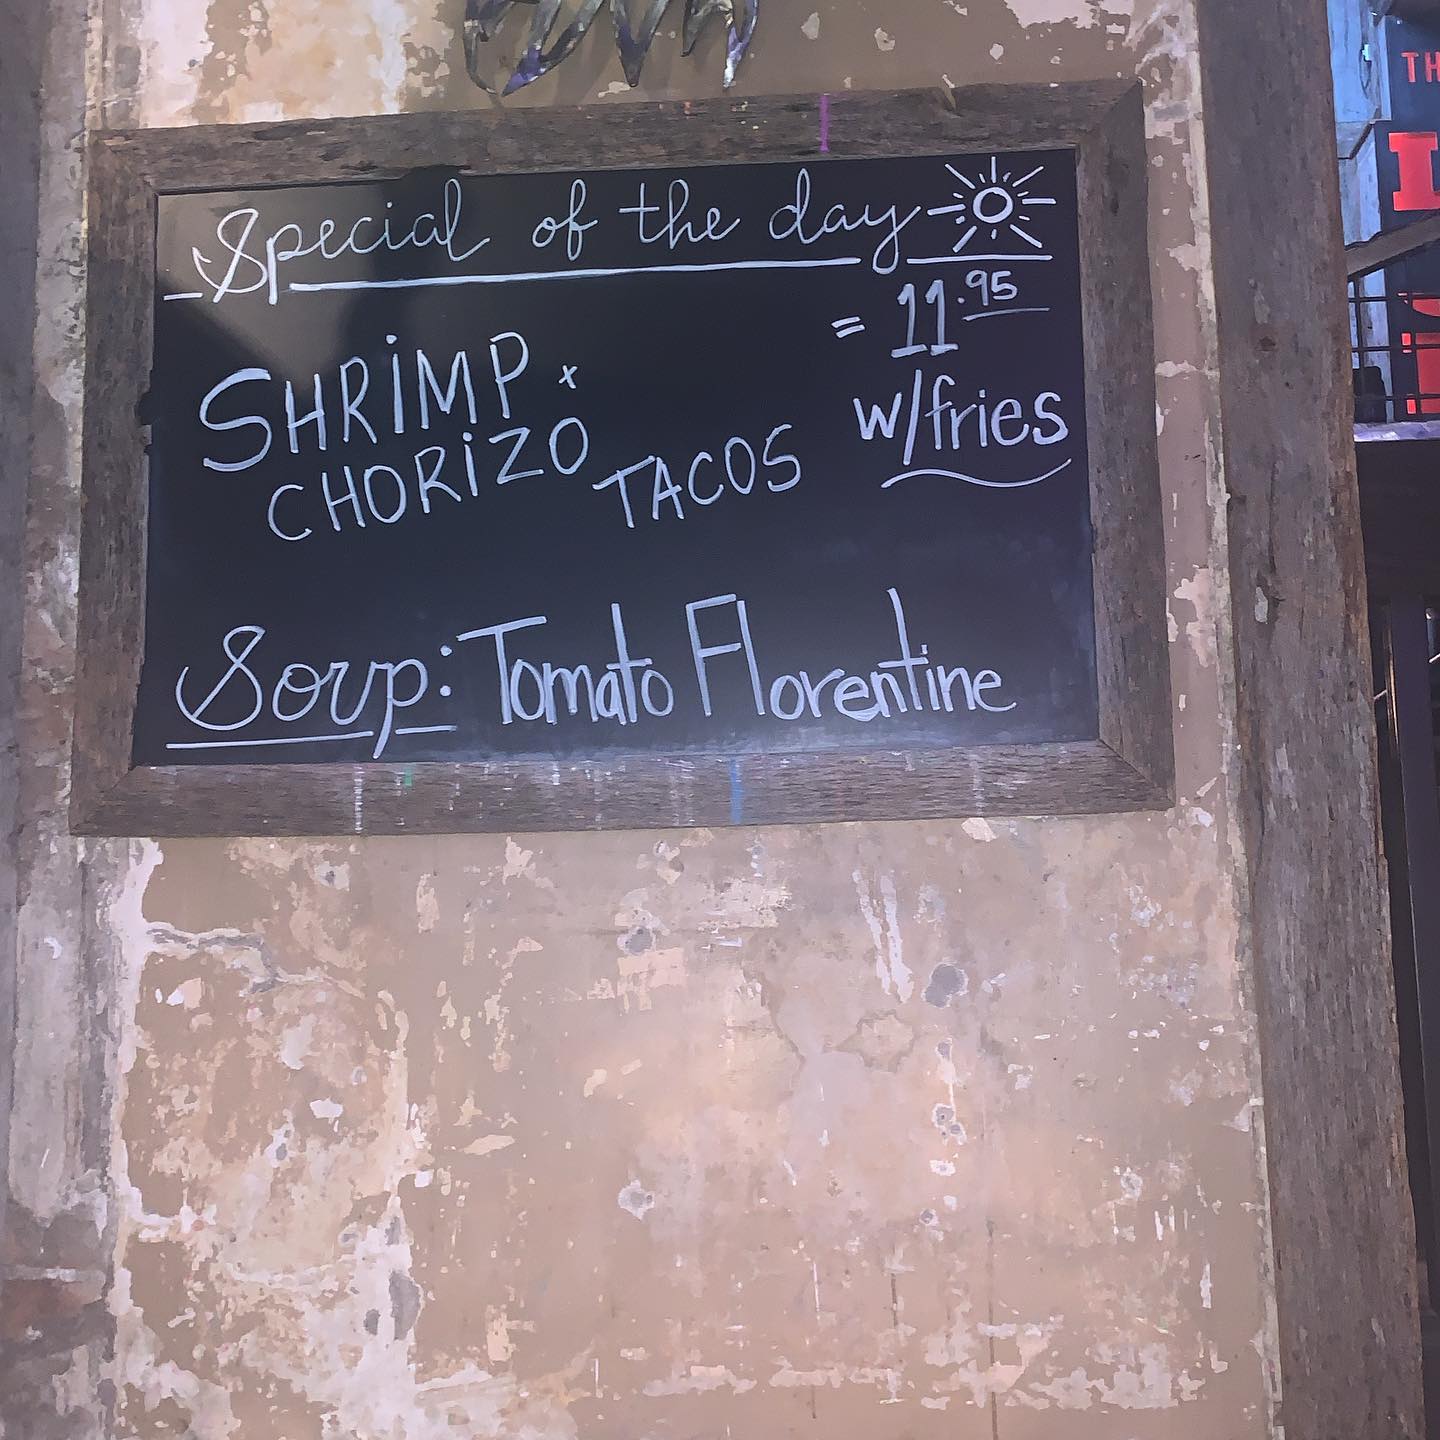 Special of the day
= 11.95
SHRiMP x
w/fries
CHORiZO TACOS
Soup: Tomato Florentine
TH